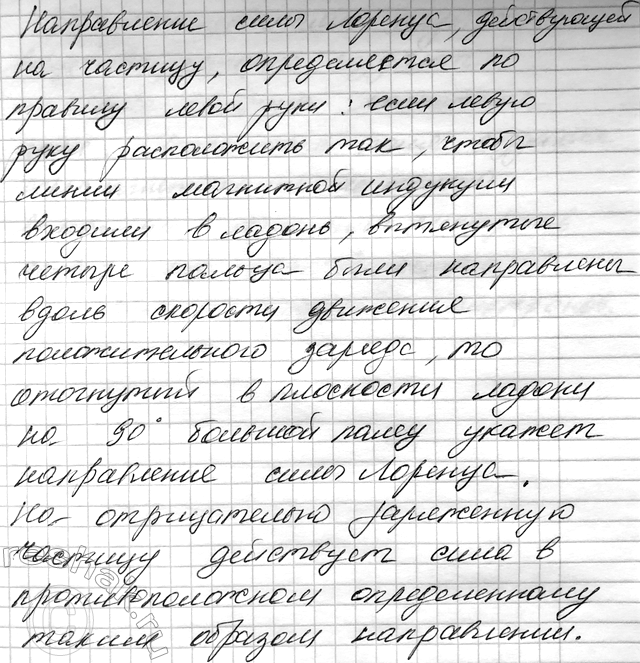 Направление силы Лоренца, действующей
на частицу, определяется по
правилу левой руки: если левую
руку расположить так, чтобы
линии магнитной индукции
входили в ладонь, вытянутые
четыре пальца были направлены
вдоль скорости движения
положительного заряда, то
отогнутый в плоскости ладони
на 90° большой палец укажет
направление силы Лоренца.
На отрицательно заряженную
частицу действует сила в
противоположном определенному
таким образом направлении.